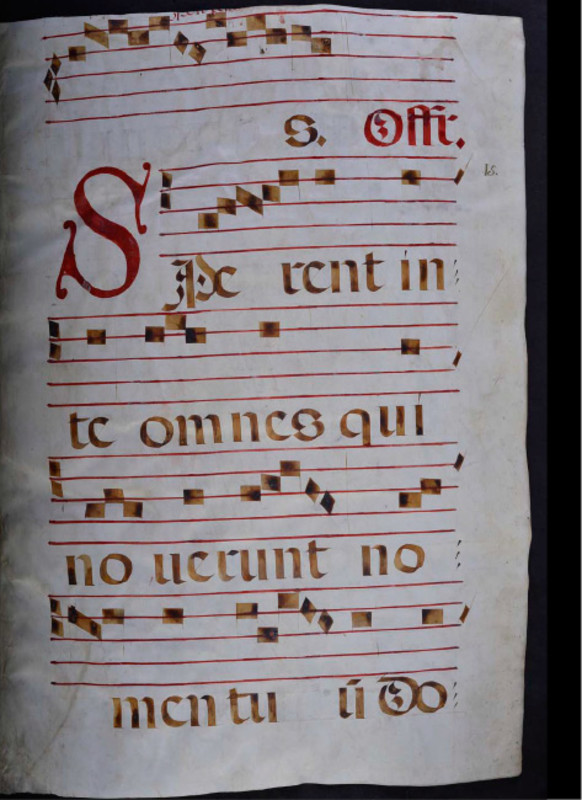 s. Offr.
SPe rent in
te omnes qui
no uerunt no
men tu ū Do